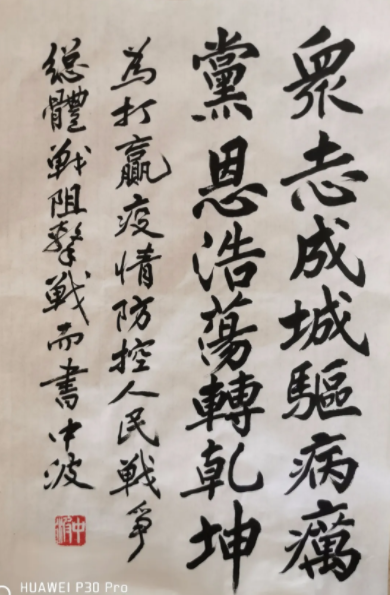 眾志成城驅病癘
黨恩浩蕩轉乾坤
為打贏疫情防控人民戰爭
總體戰阻擊戰而書中波
HUAWEI P30 Pro